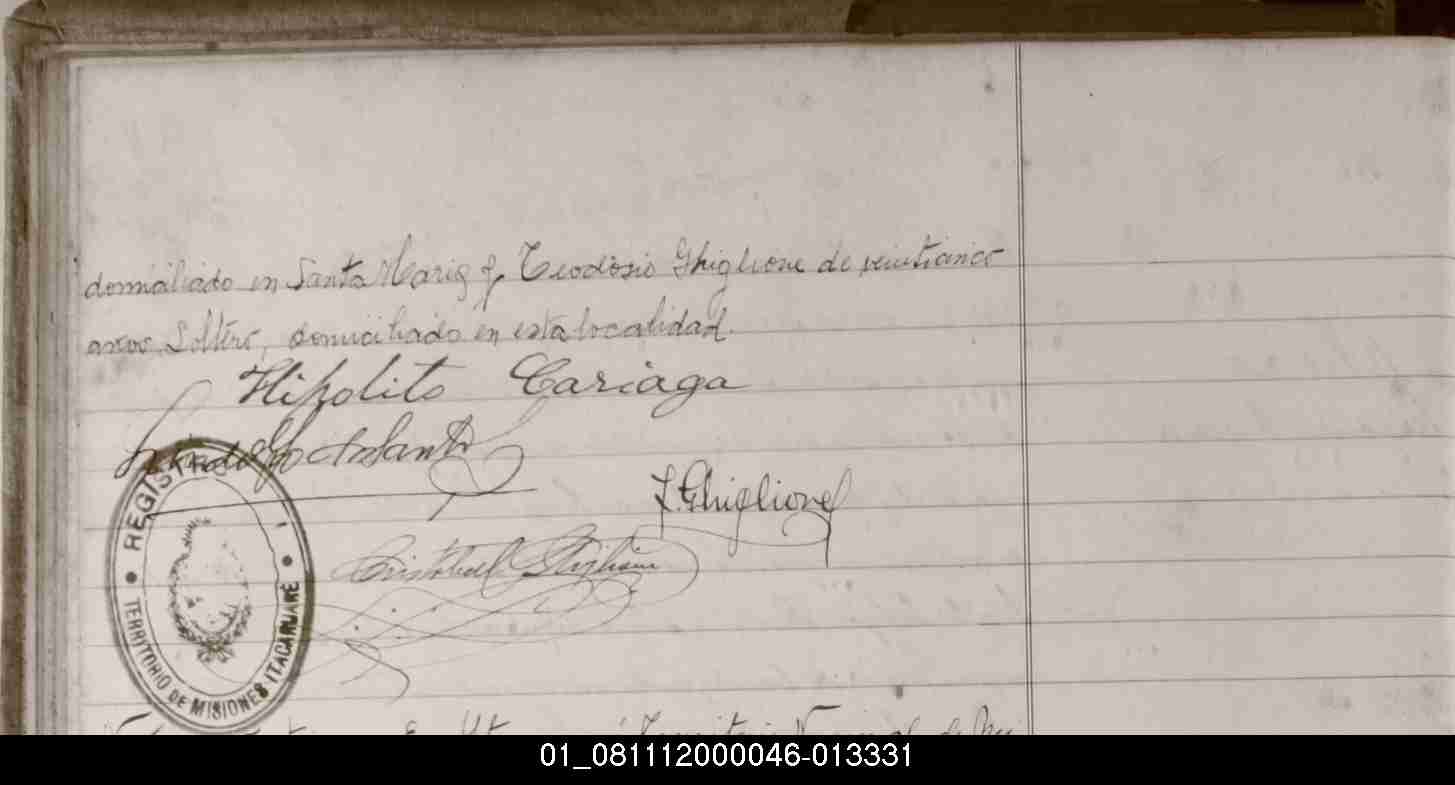 domiciliado en Santa Maria y Teodosio Ghiglione de veinticinco
anos, Soltero, domiciliado en esta localidad.
Hipolito Cariaga
T. Ghiglione
Cristobal Ghiglione
REGISTRO
TERRITORIO DE MISIONES ITACARUARÉ
Territorio Nacional de Mi
01_081112000046-013331